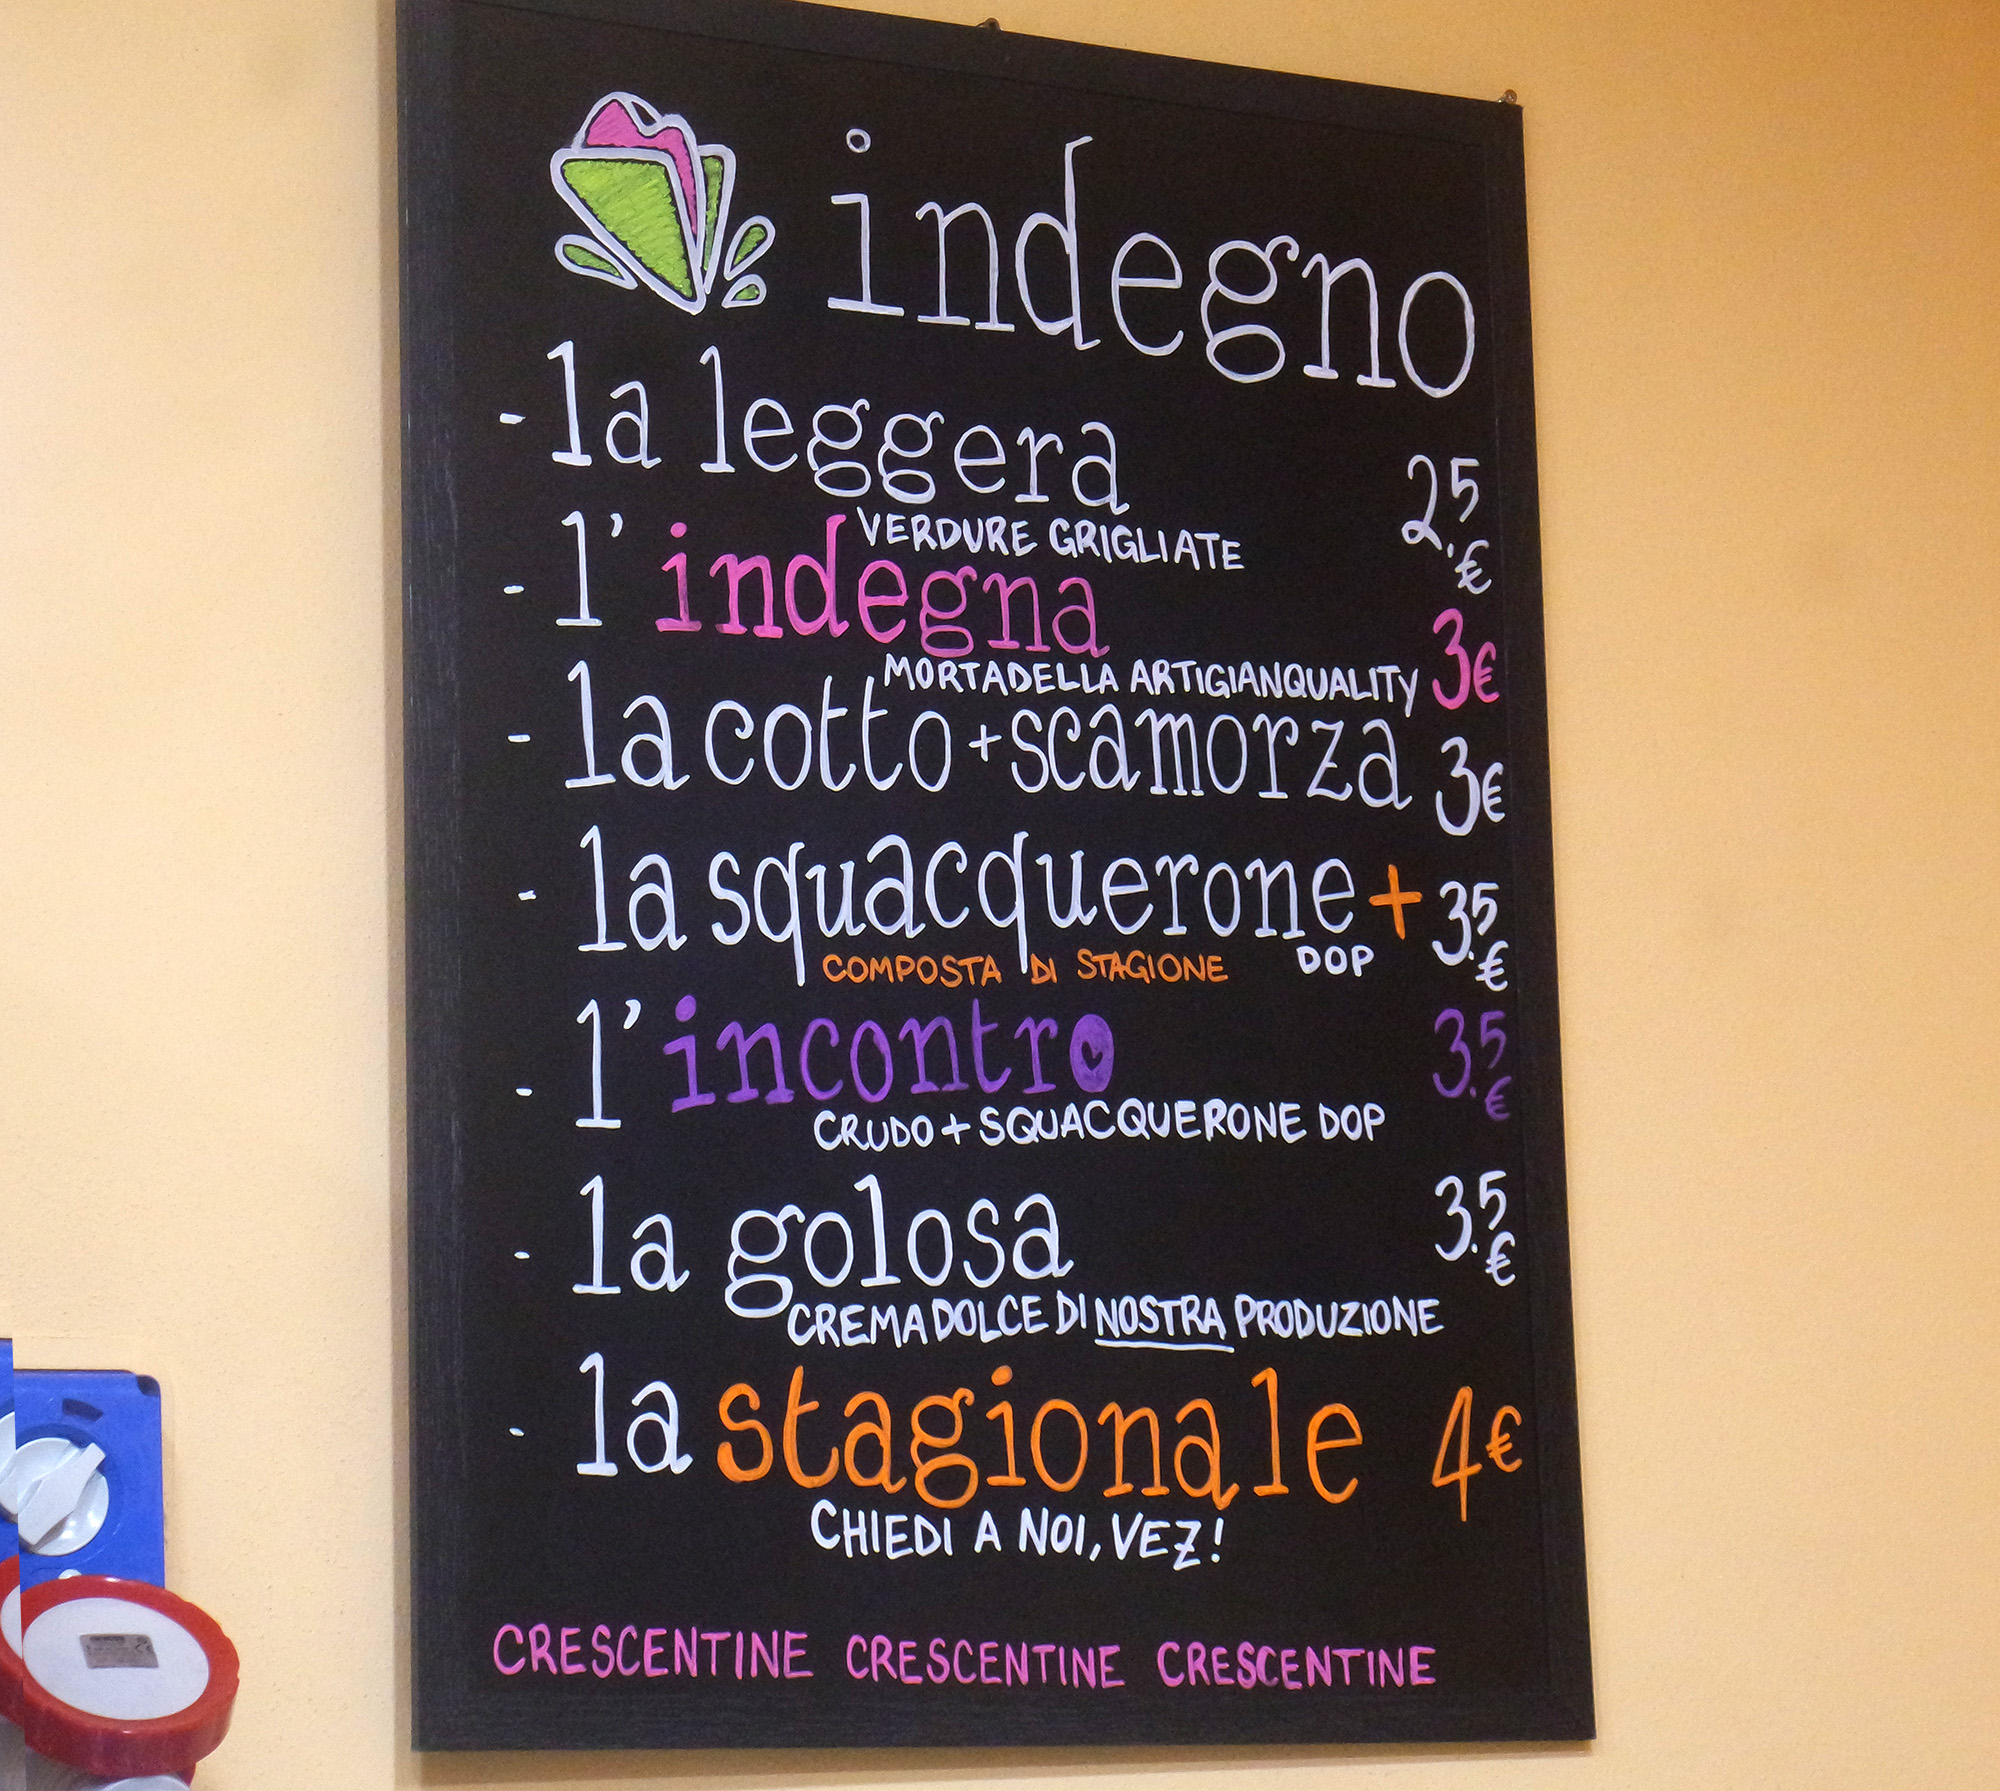 indegno
- la leggera 2.5 €
VERDURE GRIGLIATE
- l'indegna 3€
MORTADELLA ARTIGIANQUALITY
- la cotto + scamorza 3€
- la squacquerone + 3.5 €
COMPOSTA DI STAGIONE DOP
- l'incontro 3.5 €
CRUDO + SQUACQUERONE DOP
- la golosa 3.5 €
CREMA DOLCE DI NOSTRA PRODUZIONE
- la stagionale 4€
CHIEDI A NOI, VEZ!
CRESCENTINE CRESCENTINE CRESCENTINE